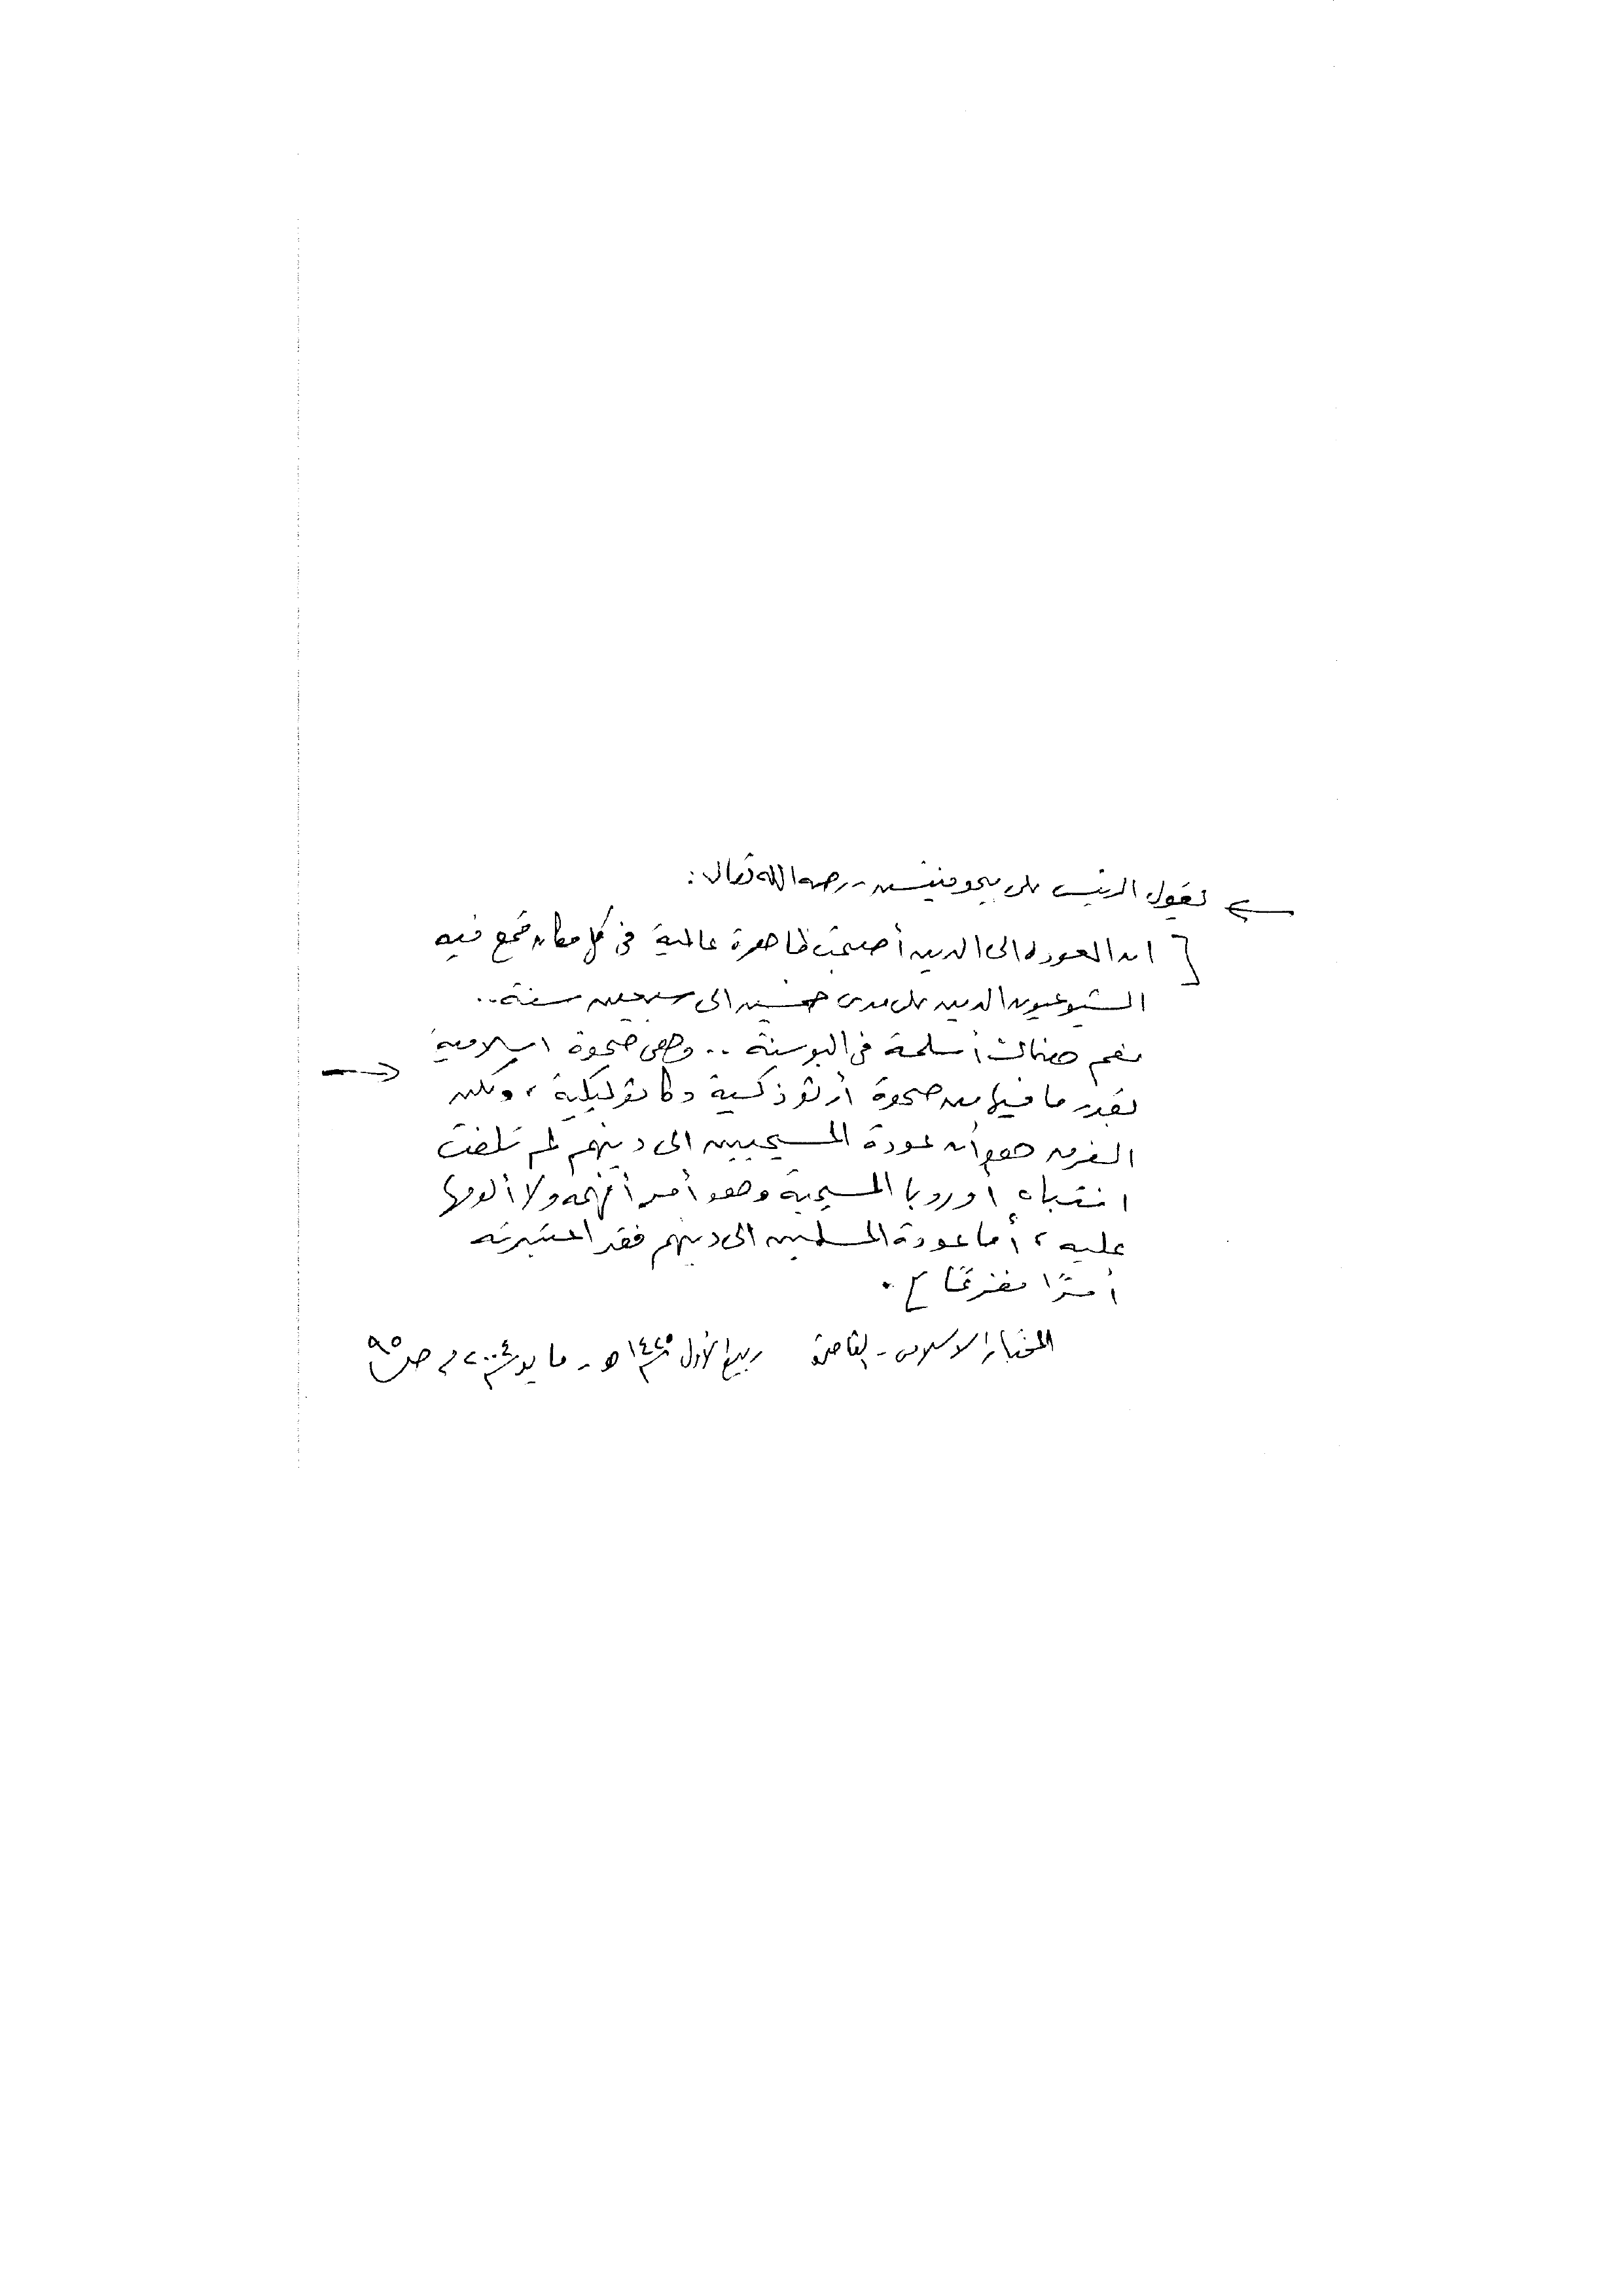 يقول الرئيس على بيجوفيتش - رحمه الله تعالى :
[ ان العودة الى الدين أصبحت ظاهرة عالمية فى كل مكان قمع فيه
الشيوعيون الدين على مدى خمسين الى سبعين سنة ..
نعم هناك أسلمة فى البوسنة .. وهى صحوة اسلامية
بقدر ما فيها من صحوة أرثوذكسية وكاثوليكية ، ولكن
الفرق هو أن عودة المسيحيين الى دينهم لم تلفت
انتباه أوروبا المسيحية وهو أمر أفهمه ولا ألومها
عليه ، أما عودة المسلمين الى دينهم فقد اعتبرته
أمرًا مفزعًا ] .
المختار الاسلامى - القاهرة ربيع الأول ١٤٢٥ هـ - مايو ٢٠٠٤ م ص ٩٥